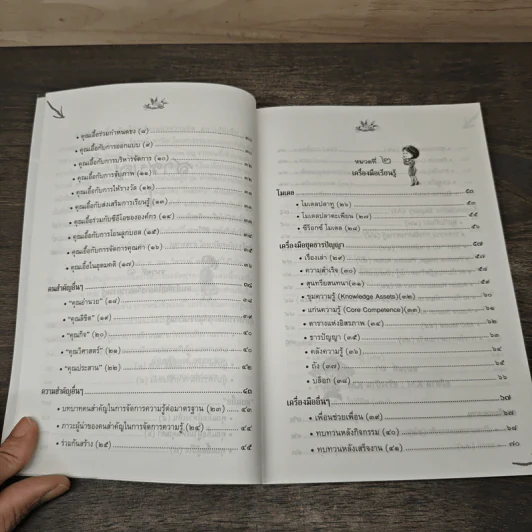 • คุณเอื้อร่วมกำหนดธง (๘)
• คุณเอื้อกับการออกแบบ (๙)
• คุณเอื้อกับการบริหารจัดการ (๑๐)
• คุณเอื้อกับการจับภาพ (๑๑)
• คุณเอื้อกับการให้รางวัล (๑๒)
• คุณเอื้อกับส่งเสริมการเรียนรู้ (๑๓)
• คุณเอื้อร่วมกับซีอีโอขององค์กร (๑๔)
• คุณเอื้อกับการโยนลูกบอล (๑๕)
• คุณเอื้อกับการจัดการคุณค่า (๑๖)
• คุณเอื้อในอุดมคติ (๑๗)
คนสำคัญอื่นๆ
• “คุณอำนวย” (๑๘)
• “คุณลิขิต” (๑๙)
• “คุณกิจ” (๒๐)
• “คุณวิศาสตร์” (๒๑)
• “คุณประสาน” (๒๒) ๔๒
ความสำคัญอื่นๆ ๔๓
• บทบาทคนสำคัญในการจัดการความรู้ต่อมาตรฐาน (๒๓) ๔๓
• ภาวะผู้นำของคนสำคัญในการจัดการความรู้ (๒๔) ๔๔
• ร่วมกันสร้าง (๒๕) ๔๕
หมวดที่ ๒
เครื่องมือเรียนรู้
โมเดล ๕๓
• โมเดลปลาทู (๒๖) ๕๓
• โมเดลปลาตะเพียน (๒๗) ๕๕
• ซีร็อกซ์ โมเดล (๒๘) ๕๖
เครื่องมือชุดธารปัญญา ๕๗
• เรื่องเล่า (๒๙) ๕๗
• ความสำเร็จ (๓๐) ๕๘
• สุนทรียสนทนา(๓๑) ๕๙
• ขุมความรู้ (Knowledge Assets)(๓๒) ๖๐
• แก่นความรู้ (Core Competence)(๓๓) ๖๑
• ตารางแห่งอิสรภาพ (๓๔) ๖๒
• ธารปัญญา (๓๕) ๖๓
• คลังความรู้ (๓๖) ๖๔
• ถัง (๓๗) ๖๕
• บล็อก (๓๘) ๖๖
เครื่องมืออื่นๆ ๖๗
• เพื่อนช่วยเพื่อน (๓๙) ๖๗
• ทบทวนหลังกิจกรรม (๔๐) ๖๘
• ทบทวนหลังเสร็จงาน (๔๑) ๗๐